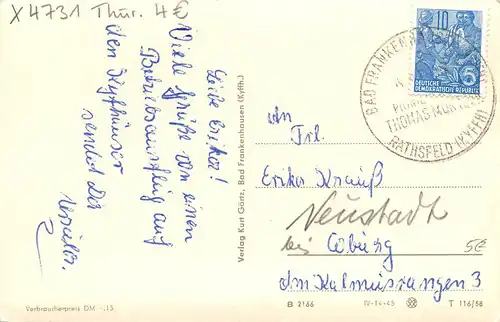 X 4731 Thür. 4 €
Liebe Erika!
Viele Grüße von einen
Betriebsausflug auf
den Kyffhäuser
sendet Dir
Verlag Kurt Görtz, Bad Frankenhausen (Kyffh.)
10
DEUTSCHE
DEMOKRATISCHE REPUBLIK
5
BAD FRANKENHA
THOMAS MÜN
RATHSFELD (KYFFH)
An
Frl.
Erika Krauß
Neustadt
bei Coburg
5€
Am Kalmusrangen 3
Verbraucherpreis DM -.15
B 2166
IV-14-45
T 116/58